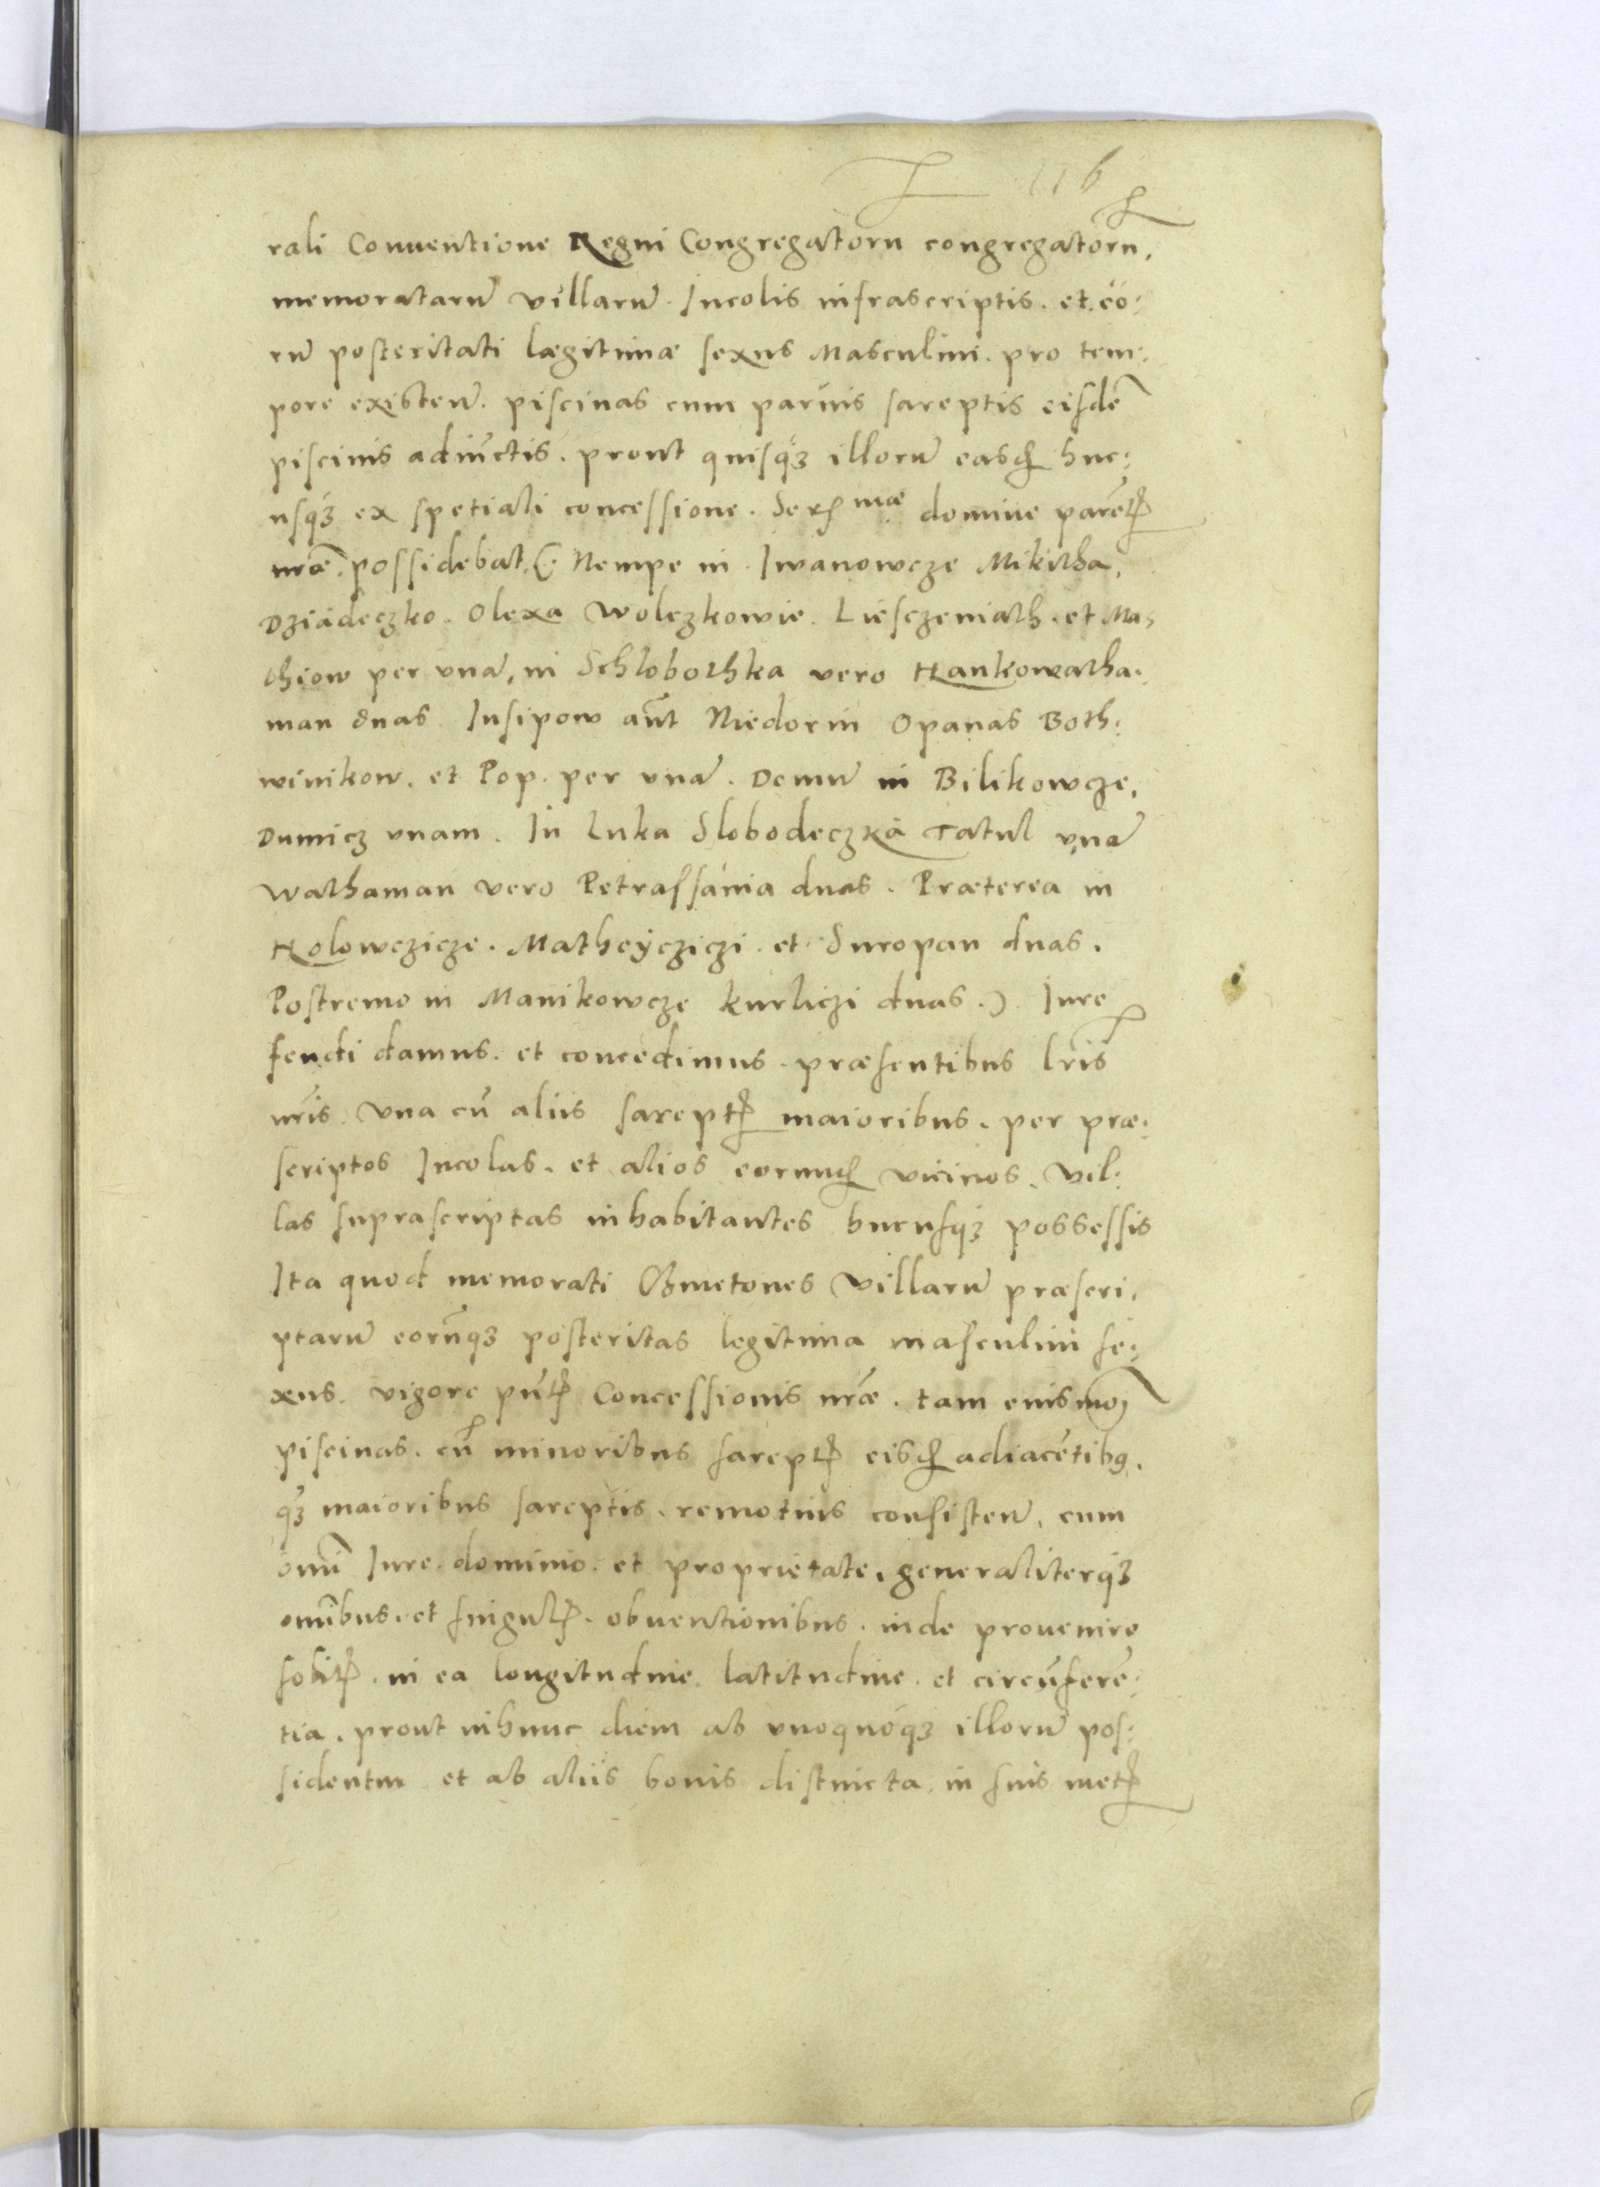 116
rali Conuentione Regni Congregatoru congregatoru,
memoratarũ villarũ. Incolis infrascriptis. et. eo:
rũ posteritati lægitimæ sexus Masculini. pro tem:
pore existeñ. piscinas cum paruis sareptis eisdẽ
piscinis adiũctis. prout quisq3 illorũ easd huc:
usq3 ex spetiali concessione. Sermæ domine parẽt
nræ. possidebat. (: Nempe in Iwanowcze Mikitha,
Dziadeczko. Olexa Wolczkowie. Liesczeniath. et Ma,
thiow per vnã, in Schlobothka vero Hankowatha.
man duas. Iusipow aũt Niedorin Opanas Both:
winikow. et Pop. per vnã. Demũ in Bilikowcze,
Dumicz vnam. In Luka Slobodeczka Tatul vnã
Wathaman vero Petrassania duas. Præterea in
Holowczicze. Matheÿcziczi. et Suropan duas.
Postremo in Manikowcze kurliczi duas.) Iure
feudi damus. et concedimus. præsentibus lris
nris. Vna cũ aliis sarept maioribus. per præ:
scriptos Incolas. et alios eorund vicinos. Vil:
las suprascriptas inhabitantes hucusq3 possessis
Ita quod memorati Cmetones Villarũ præscri,
ptarũ eorũq3 posteritas legitima masculini se:
xus. vigore pñt Concessionis nræ. tam euismo)
piscinas. cũ minoribus sarept eisd adiacẽtib9.
q3 maioribus sareptis. remotius consisteñ. cum
omi Iure. dominio. et proprietate. generaliterq3
omibus. et singul. obuentionibus. inde prouenire
solit. in ea longitudine. latitudine. et circũferẽ:
tia. prout inhunc diem ab vnoquoq3 illorũ pos:
sidentur et ab aliis bonis distincta. in suis met